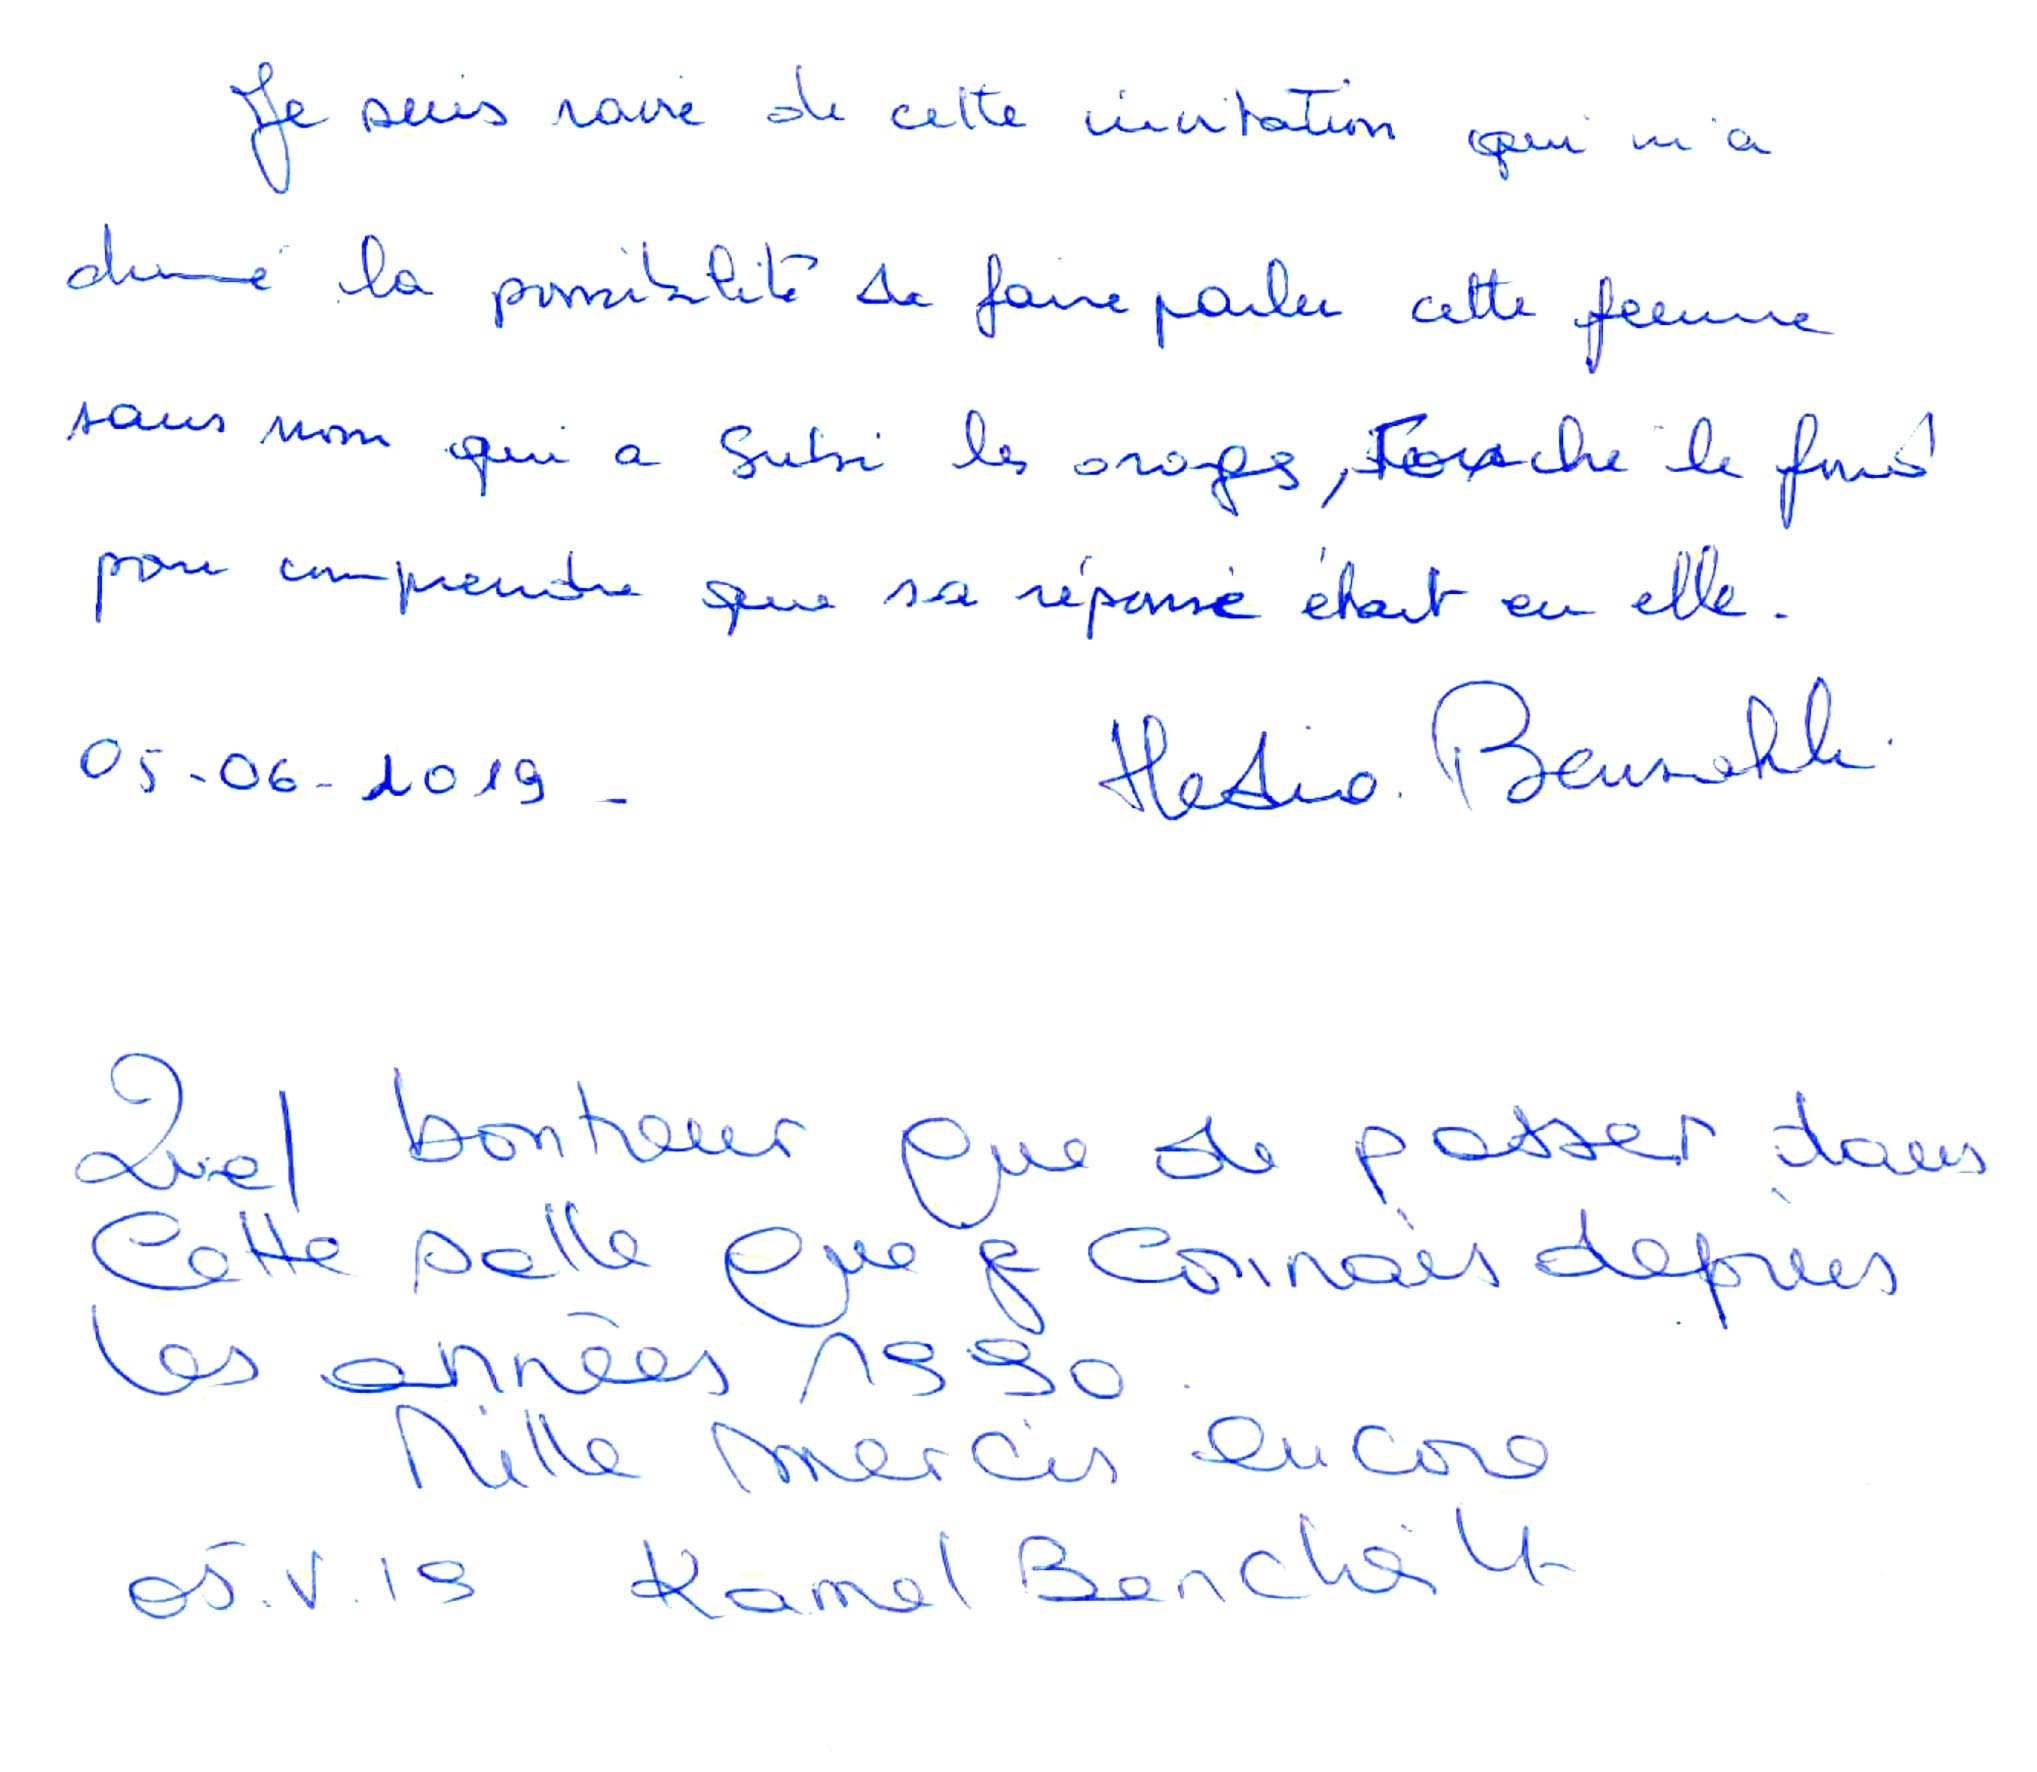 Je suis ravie de cette invitation qui m'a
donné la possibilité de faire parler cette femme
sans nom qui a subi les orages, touché le fond
pour comprendre que sa réponse était en elle.
05-06-2019 -
Bensahli
Quel bonheur que de passer dans
Cette salle que je connais depuis
les années 1990.
Mille mercis encore
05.V.19 Kamel Bencheikh